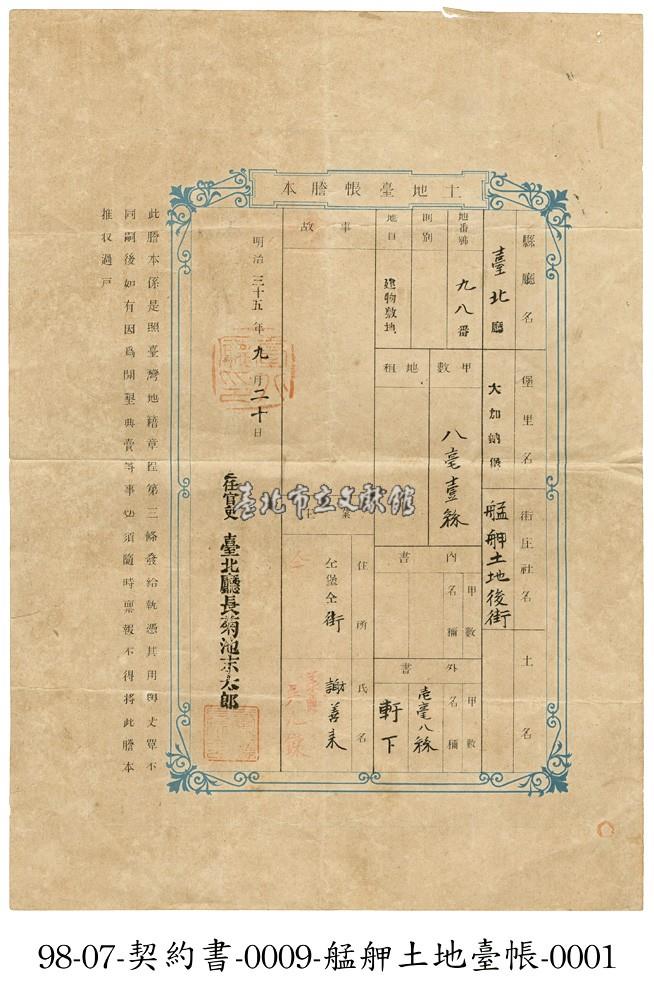 土地臺帳謄本
縣廳名
臺北廳
堡里名
大加蚋堡
街庄社名
艋舺土地後街
土名
地番號
九八番
則別
地目
建物敷地
甲數
八毫壹絲
地租
內書
甲數
名稱
外書
甲數
壱毫八絲
名稱
軒下
事故
業主
住所
仝堡仝街
氏名
謝善来
明治三十五年九月二十日
臺北廳長菊池末太郎
此謄本係是照臺灣地籍章程第三條發給執憑其用與丈單不
同嗣後如有因為開墾典賣等事切須隨時稟報不得將此謄本
推收過戶
臺北市立文獻館
98-07-契約書-0009-艋舺土地臺帳-0001